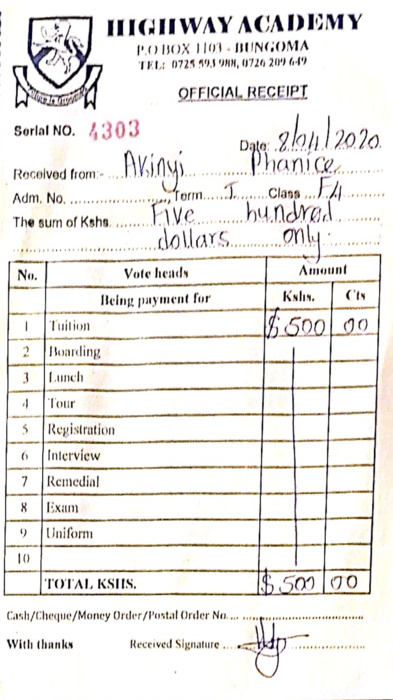 HIGHWAY ACADEMY
P.O BOX 1103 - BUNGOMA
TEL: 0725 593 988, 0726 209 649
OFFICIAL RECEIPT
Serial NO. 4303
Date: 8/04/2020
Received from:- Akinyi Phanice
Adm. No. .................., Term ..I.. Class ..F4
The sum of Kshs. Five hundred
dollars only.
No. Vote heads Amount
Being payment for Kshs. Cts
1 Tuition $500 00
2 Boarding
3 Lunch
4 Tour
5 Registration
6 Interview
7 Remedial
8 Exam
9 Uniform
10
TOTAL KSHS. $500 00
Cash/Cheque/Money Order/Postal Order No. ..............................
With thanks Received Signature ..............................